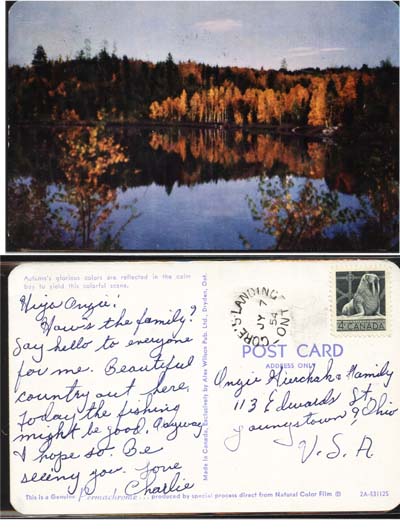 Autumn's glorious colors are reflected in the calm
bay to yield this colorful scene.
Hiya Angie!
How's the family?
Say hello to everyone
for me. Beautiful
country out here.
Today the fishing
might be good. Anyway
I hope so. Be
seeing you. Love
Charlie
This is a Genuine Permachrome... produced by special process direct from Natural Color Film ©
Made in Canada, Exclusively by Alex Wilson Pub. Ltd., Dryden, Ont.
GORE'S LANDING
JY 7
54
ONT
4¢ CANADA
POST CARD
ADDRESS ONLY
Angie & Family
113 Edwards St.
Youngstown 9, Ohio
U.S.A
2A-S3112S